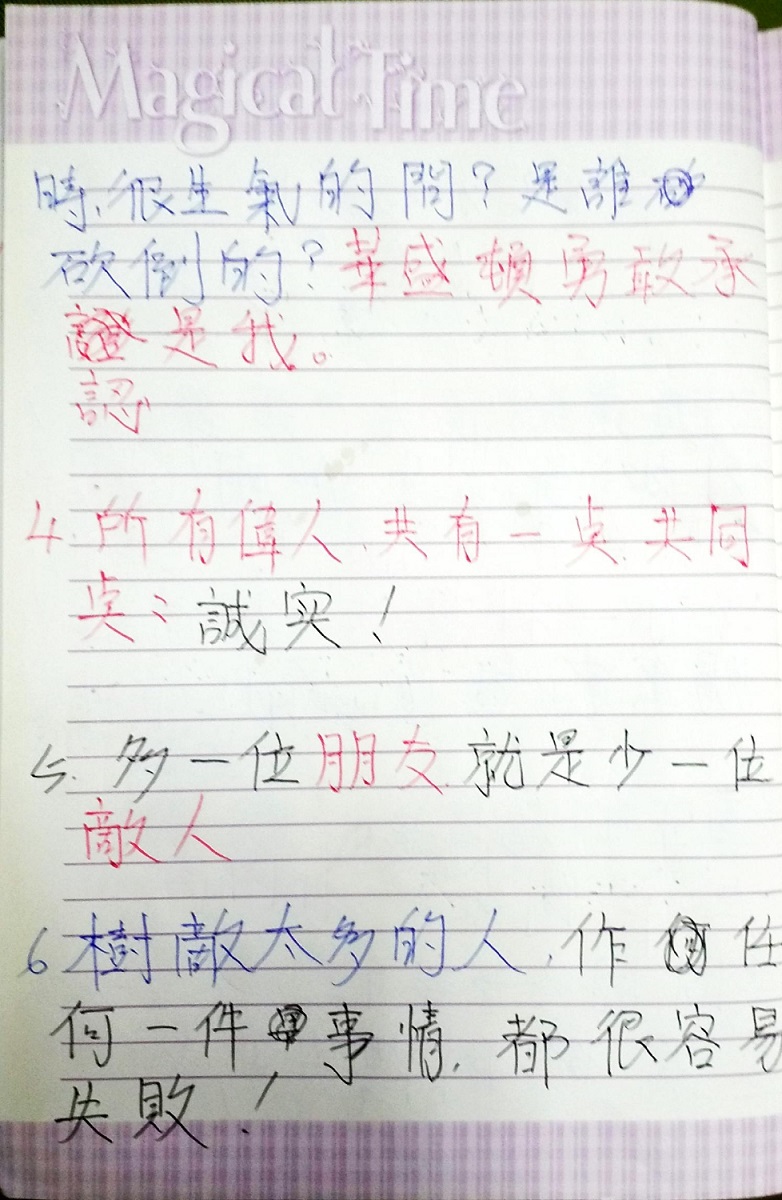 Magical Time
時,很生氣的問?是誰
砍倒的?華盛頓勇敢承
是我。
認
4.所有偉人、共有一点、共同
点:誠実!
5.多一位朋友就是少一位
敵人
6樹敵太多的人,作任
何一件事情,都很容易
失敗!